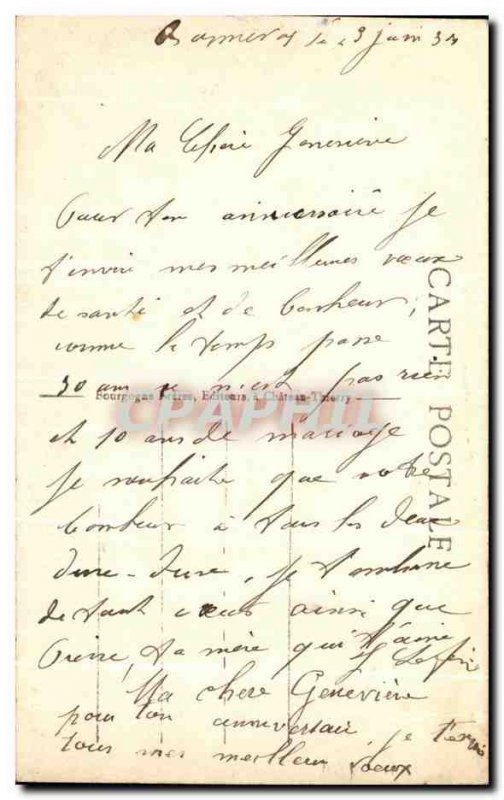 le 23 juin 34
Ma Chère Geneviève
Pour ton anniversaire je
t'envoie mes meilleures vœux
de santé et de bonheur,
comme le temps passe
30 ans ce n'est pas rien
Bourgogne Frères, Editeurs, à Château-Thierry
CPAPHIL
et 10 ans de mariage
je souhaite que votre
bonheur à tous les deux
dure - dure, je t'embrasse
de tout cœur ainsi que
Pierre, ta mère qui t'aime
Ma chere Geneviève
pour ton anniversaire je
tous mes meilleur vœux
CARTE POSTALE